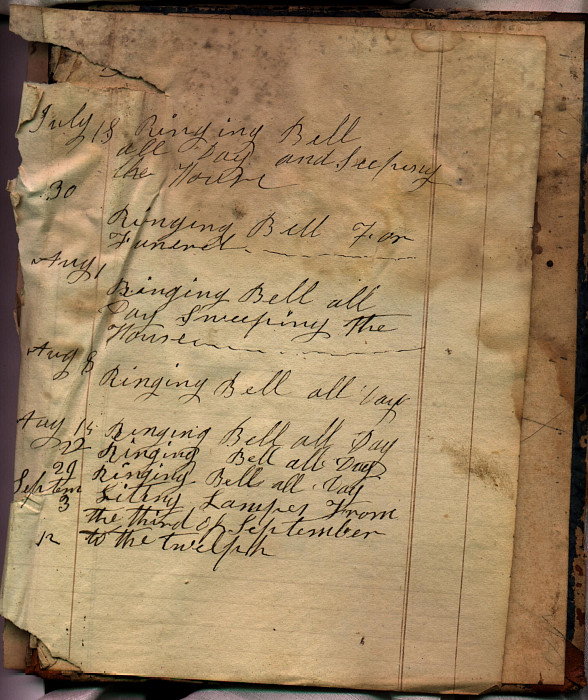 July 18 Ringing Bell
all Day and Seeping
the House
30
Ringing Bell For
Funerel
Aug 1
Ringing Bell all
Day Sweeping the
House
Aug 8
Ringing Bell all Day
Aug 15 Ringing Bell all Day
22 Ringing Bell all Day
29 Ringing Bells all Day
Septem Liting Lampes From
3 the third of September
12 to the twelph